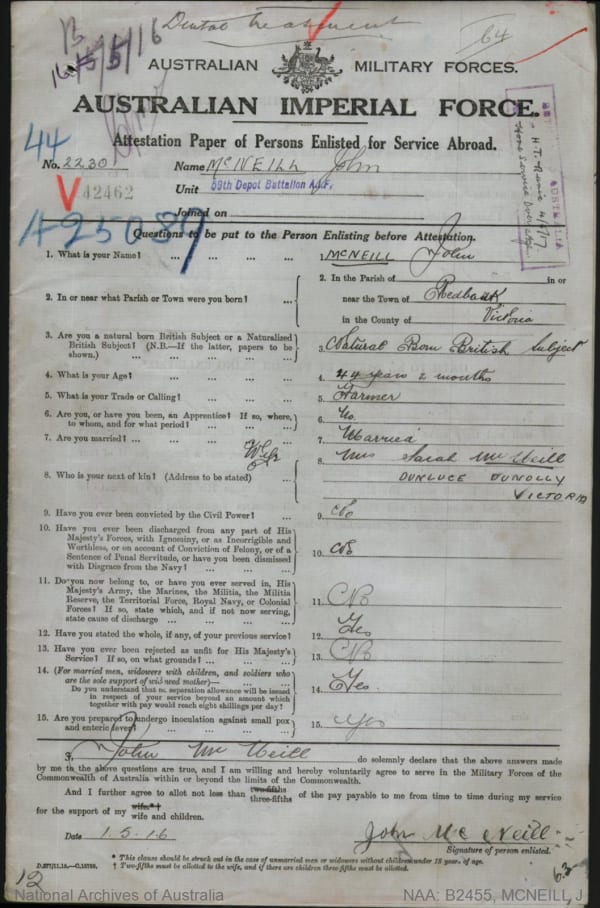 Dental Treatment
B
16/5/16
64
AUSTRALIAN MILITARY FORCES.
AUSTRALIAN IMPERIAL FORCE.
Attestation Paper of Persons Enlisted for Service Abroad.
44
No. 2230
Name McNEILL John
V 42462
Unit 59th Depot Battalion A.I.F.
Joined on
425087
AUSTRALIA
H.T. Runic
Home Service Overage
Questions to be put to the Person Enlisting before Attestation.
1. What is your Name? ... ... ... ... 1 McNEILL John
2. In or near what Parish or Town were you born? ... 2. In the Parish of in or
near the Town of Redbank
in the County of Victoria
3. Are you a natural born British Subject or a Naturalized
British Subject? (N.B.—If the latter, papers to be
shown.) ... ... ... ... 3. Natural Born British Subject
4. What is your Age? ... ... ... ... 4. 44 years 2 months
5. What is your Trade or Calling? ... ... ... 5. Farmer
6. Are you, or have you been, an Apprentice? If so, where,
to whom, and for what period? ... ... ... 6. No.
7. Are you married? ... ... ... ... 7. Married
Wife
8. Who is your next of kin? (Address to be stated) ... 8. Mrs Sarah McNeill
DUNLUCE DUNOLLY
VICTORIA
9. Have you ever been convicted by the Civil Power? ... 9. No
10. Have you ever been discharged from any part of His
Majesty's Forces, with Ignominy, or as Incorrigible and
Worthless, or on account of Conviction of Felony, or of a
Sentence of Penal Servitude, or have you been dismissed
with Disgrace from the Navy? ... ... ... 10. No
11. Do you now belong to, or have you ever served in, His
Majesty's Army, the Marines, the Militia, the Militia
Reserve, the Territorial Force, Royal Navy, or Colonial
Forces? If so, state which, and if not now serving,
state cause of discharge ... ... ... 11. No
12. Have you stated the whole, if any, of your previous service? 12. Yes
13. Have you ever been rejected as unfit for His Majesty's
Service? If so, on what grounds? ... ... ... 13. No
14. (For married men, widowers with children, and soldiers who
are the sole support of widowed mother)—
Do you understand that no separation allowance will be issued
in respect of your service beyond an amount which
together with pay would reach eight shillings per day? 14. Yes.
15. Are you prepared to undergo inoculation against small pox
and enteric fever? ... ... ... 15. Yes
I, John McNeill do solemnly declare that the above answers made
by me to the above questions are true, and I am willing and hereby voluntarily agree to serve in the Military Forces of the
Commonwealth of Australia within or beyond the limits of the Commonwealth.
And I further agree to allot not less than two-fifths three-fifths of the pay payable to me from time to time during my service
for the support of my wife*† wife and children.
Date 1.5.16
John McNeill
Signature of person enlisted.
D.277/11.15.—C.15758.
* This clause should be struck out in the case of unmarried men or widowers without children under 18 years of age.
† Two-fifths must be allotted to the wife, and if there are children three-fifths must be allotted.
12
National Archives of Australia
NAA: B2455, MCNEILL, J